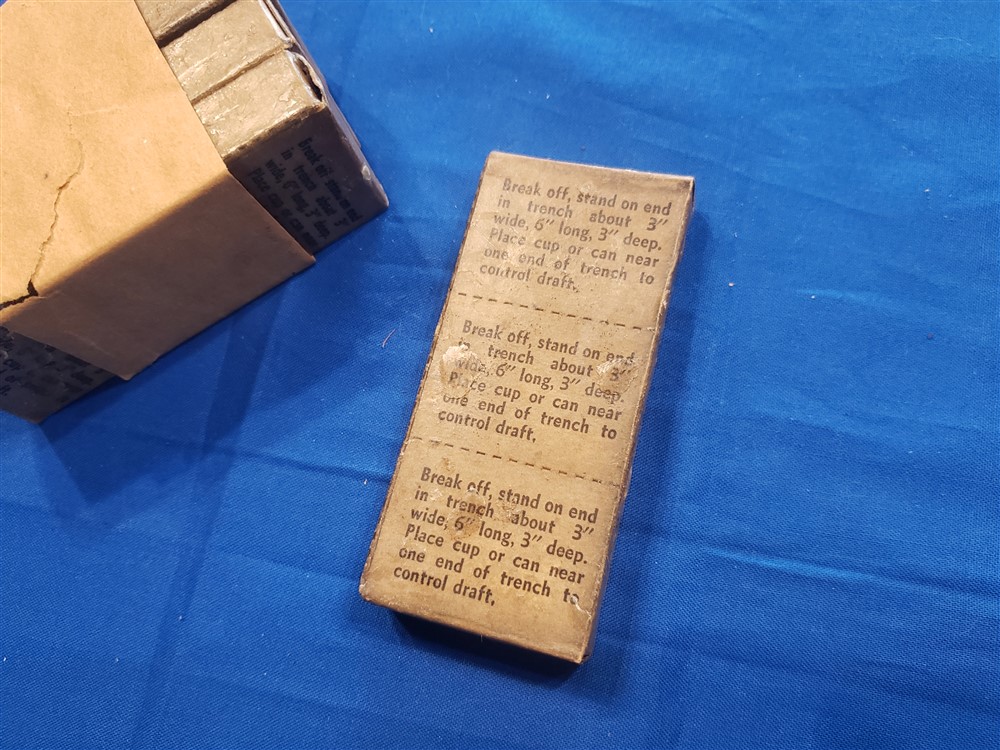 Break off, stand on end
in trench about 3"
wide, 6" long, 3" deep.
Place cup or can near
one end of trench to
control draft.
Break off, stand on end
in trench about 3"
wide, 6" long, 3" deep.
Place cup or can near
one end of trench to
control draft.
Break off, stand on end
in trench about 3"
wide, 6" long, 3" deep.
Place cup or can near
one end of trench to
control draft.
Break off, stand on end
in trench about 3"
wide, 6" long, 3" deep.
Place cup or can near